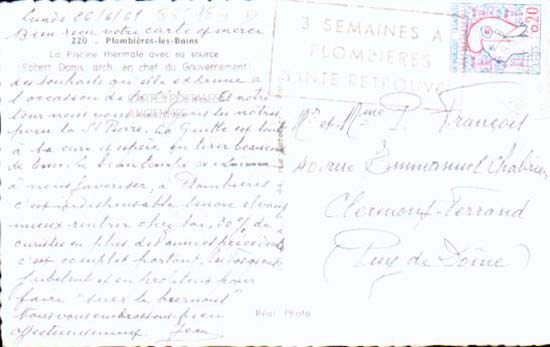 Lundi 26/6/61
Bien reçu votre carte et merci
220 - Plombières-les-Bains
La Piscine thermale avec sa source
(Robert Danis, arch. en chef du Gouvernement)
des souhaits qu'elle exprime à
l'occasion de la Et notre
tour nous vous les nôtres
pour la St Pierre. La est tout
à la cure et espère en tirer beaucoup
de bien. le beau temps
à nous favoriser, à Plombières
c'est indispensable sinon
mieux rentrer chez soi. 30% de
curistes en plus des années précédentes
c'est complet partout, les
jubilent et en profitent pour
faire "suer le burnous"
Nous vous embrassons bien
affectueusement Jean
CARTES POSTALES
ANCIENNES
3 SEMAINES A
PLOMBIERES
SANTE RETROUVEE
0,20
Mr et Mme P. François
40 rue Emmanuel Chabrier
Clermont-Ferrand
(Puy de Dôme)
Réal Photo